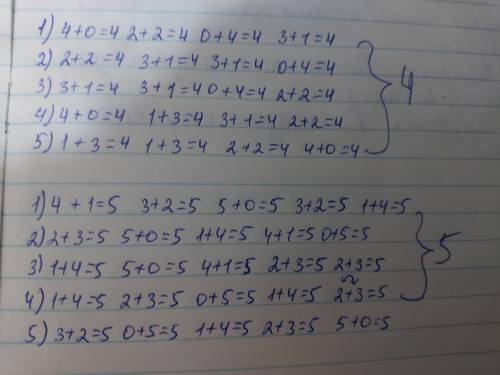 1) 4+0=4 2+2=4 0+4=4 3+1=4
2) 2+2=4 3+1=4 3+1=4 0+4=4
3) 3+1=4 3+1=4 0+4=4 2+2=4
4) 4+0=4 1+3=4 3+1=4 2+2=4
5) 1+3=4 1+3=4 2+2=4 4+0=4
4
1) 4+1=5 3+2=5 5+0=5 3+2=5 1+4=5
2) 2+3=5 5+0=5 1+4=5 4+1=5 0+5=5
3) 1+4=5 5+0=5 4+1=5 2+3=5 2+3=5
4) 1+4=5 2+3=5 0+5=5 1+4=5 2+3=5
5) 3+2=5 0+5=5 1+4=5 2+3=5 5+0=5
5